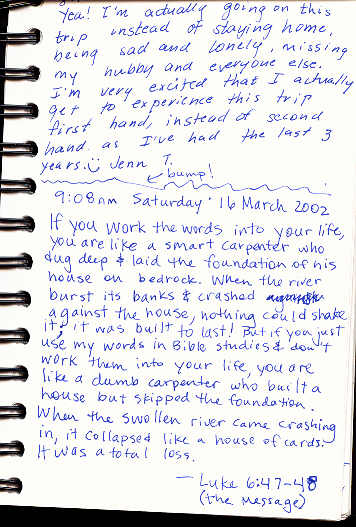 Yea! I'm actually going on this
trip instead of staying home,
being sad and lonely, missing
my hubby and everyone else.
I'm very excited that I actually
get to experience this trip
first hand, instead of second
hand as I've had the last 3
years. Jenn T.
bump!
9:08am Saturday 16 March 2002
If you work the words into your life,
you are like a smart carpenter who
dug deep & laid the foundation of his
house on bedrock. When the river
burst its banks & crashed
against the house, nothing could shake
it; it was built to last! But if you just
use my words in Bible studies & don't
work them into your life, you are
like a dumb carpenter who built a
house but skipped the foundation.
When the swollen river came crashing
in, it collapsed like a house of cards.
It was a total loss.
— Luke 6:47-48
(the Message)